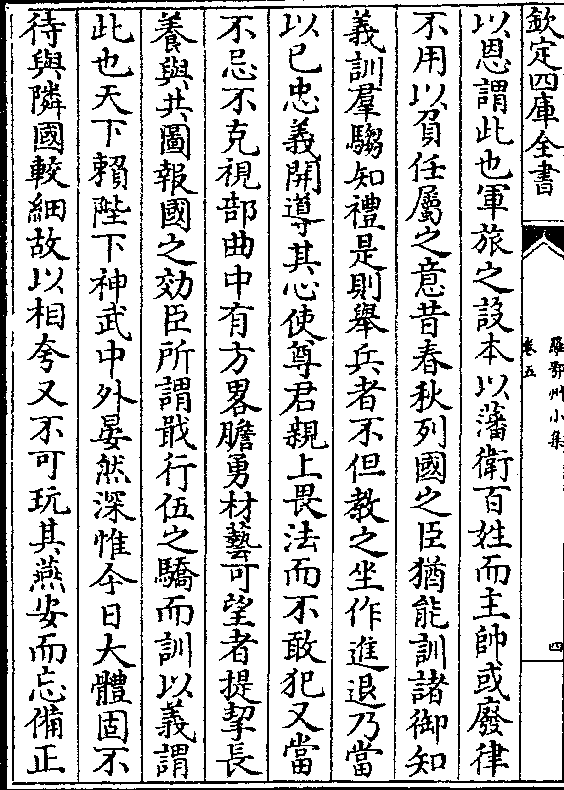 欽定四庫全書
羅鄂州小集
卷五
四
以恩謂此也軍旅之設本以藩衛百姓而主帥或廢律
不用以負任屬之意昔春秋列國之臣猶能訓諸御知
義訓羣騶知禮是則舉兵者不但教之坐作進退乃當
以已忠義開導其心使尊君親上畏法而不敢犯又當
不忌不克視部曲中有方畧膽勇材藝可望者提挈長
養與共圖報國之効臣所謂戢行伍之驕而訓以義謂
此也天下賴陛下神武中外晏然深惟今日大體固不
待與隣國較細故以相夸又不可玩其燕安而忘備正